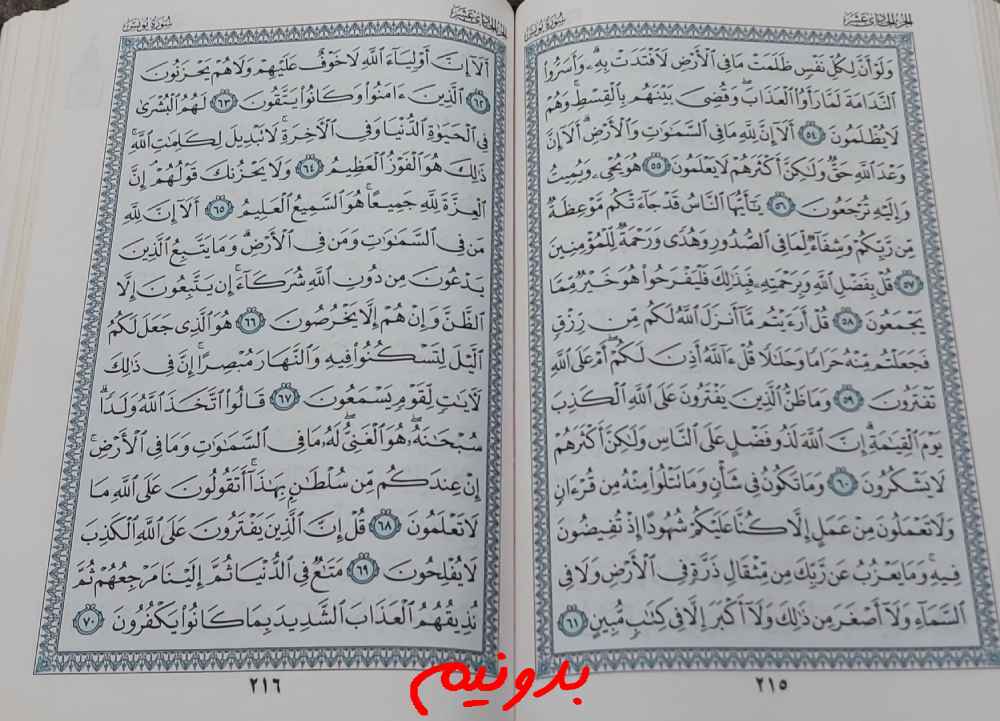 سُورَةُ يُونُسَ
الجزء الحادي عشر
وَلَوْ أَنَّ لِكُلِّ نَفْسٍ ظَلَمَتْ مَا فِي ٱلْأَرْضِ لَٱفْتَدَتْ بِهِۦۗ وَأَسَرُّوا۟
ٱلنَّدَامَةَ لَمَّا رَأَوُا۟ ٱلْعَذَابَۖ وَقُضِيَ بَيْنَهُم بِٱلْقِسْطِۚ وَهُمْ
لَا يُظْلَمُونَ ٥٤ أَلَآ إِنَّ لِلَّهِ مَا فِي ٱلسَّمَٰوَٰتِ وَٱلْأَرْضِۗ أَلَآ إِنَّ
وَعْدَ ٱللَّهِ حَقٌّ وَلَٰكِنَّ أَكْثَرَهُمْ لَا يَعْلَمُونَ ٥٥ هُوَ يُحْيِۦ وَيُمِيتُ
وَإِلَيْهِ تُرْجَعُونَ ٥٦ يَٰٓأَيُّهَا ٱلنَّاسُ قَدْ جَآءَتْكُم مَّوْعِظَةٌ
مِّن رَّبِّكُمْ وَشِفَآءٌ لِّمَا فِي ٱلصُّدُورِ وَهُدًى وَرَحْمَةٌ لِّلْمُؤْمِنِينَ
٥٧ قُلْ بِفَضْلِ ٱللَّهِ وَبِرَحْمَتِهِۦ فَبِذَٰلِكَ فَلْيَفْرَحُوا۟ هُوَ خَيْرٌ مِّمَّا
يَجْمَعُونَ ٥٨ قُلْ أَرَءَيْتُم مَّآ أَنزَلَ ٱللَّهُ لَكُم مِّن رِّزْقٍ
فَجَعَلْتُم مِّنْهُ حَرَامًا وَحَلَٰلًا قُلْ ءَآللَّهُ أَذِنَ لَكُمْۖ أَمْ عَلَى ٱللَّهِ
تَفْتَرُونَ ٥٩ وَمَا ظَنُّ ٱلَّذِينَ يَفْتَرُونَ عَلَى ٱللَّهِ ٱلْكَذِبَ
يَوْمَ ٱلْقِيَٰمَةِۗ إِنَّ ٱللَّهَ لَذُو فَضْلٍ عَلَى ٱلنَّاسِ وَلَٰكِنَّ أَكْثَرَهُمْ
لَا يَشْكُرُونَ ٦٠ وَمَا تَكُونُ فِي شَأْنٍ وَمَا تَتْلُوا۟ مِنْهُ مِن قُرْءَانٍ
وَلَا تَعْمَلُونَ مِنْ عَمَلٍ إِلَّا كُنَّا عَلَيْكُمْ شُهُودًا إِذْ تُفِيضُونَ
فِيهِۚ وَمَا يَعْزُبُ عَن رَّبِّكَ مِن مِّثْقَالِ ذَرَّةٍ فِي ٱلْأَرْضِ وَلَا فِي
ٱلسَّمَآءِ وَلَآ أَصْغَرَ مِن ذَٰلِكَ وَلَآ أَكْبَرَ إِلَّا فِي كِتَٰبٍ مُّبِينٍ ٦١
٢١٥
سُورَةُ يُونُسَ
الجزء الحادي عشر
أَلَآ إِنَّ أَوْلِيَآءَ ٱللَّهِ لَا خَوْفٌ عَلَيْهِمْ وَلَا هُمْ يَحْزَنُونَ
٦٢ ٱلَّذِينَ ءَامَنُوا۟ وَكَانُوا۟ يَتَّقُونَ ٦٣ لَهُمُ ٱلْبُشْرَىٰ
فِي ٱلْحَيَوٰةِ ٱلدُّنْيَا وَفِي ٱلْءَاخِرَةِۚ لَا تَبْدِيلَ لِكَلِمَٰتِ ٱللَّهِۚ
ذَٰلِكَ هُوَ ٱلْفَوْزُ ٱلْعَظِيمُ ٦٤ وَلَا يَحْزُنكَ قَوْلُهُمْۘ إِنَّ
ٱلْعِزَّةَ لِلَّهِ جَمِيعًاۚ هُوَ ٱلسَّمِيعُ ٱلْعَلِيمُ ٦٥ أَلَآ إِنَّ لِلَّهِ
مَن فِي ٱلسَّمَٰوَٰتِ وَمَن فِي ٱلْأَرْضِۗ وَمَا يَتَّبِعُ ٱلَّذِينَ
يَدْعُونَ مِن دُونِ ٱللَّهِ شُرَكَآءَۚ إِن يَتَّبِعُونَ إِلَّا
ٱلظَّنَّ وَإِنْ هُمْ إِلَّا يَخْرُصُونَ ٦٦ هُوَ ٱلَّذِي جَعَلَ لَكُمُ
ٱلَّيْلَ لِتَسْكُنُوا۟ فِيهِ وَٱلنَّهَارَ مُبْصِرًاۚ إِنَّ فِي ذَٰلِكَ
لَءَايَٰتٍ لِّقَوْمٍ يَسْمَعُونَ ٦٧ قَالُوا۟ ٱتَّخَذَ ٱللَّهُ وَلَدًاۗ
سُبْحَٰنَهُۥۖ هُوَ ٱلْغَنِيُّۖ لَهُۥ مَا فِي ٱلسَّمَٰوَٰتِ وَمَا فِي ٱلْأَرْضِۚ
إِنْ عِندَكُم مِّن سُلْطَٰنٍۭ بِهَٰذَآۚ أَتَقُولُونَ عَلَى ٱللَّهِ مَا
لَا تَعْلَمُونَ ٦٨ قُلْ إِنَّ ٱلَّذِينَ يَفْتَرُونَ عَلَى ٱللَّهِ ٱلْكَذِبَ
لَا يُفْلِحُونَ ٦٩ مَتَٰعٌ فِي ٱلدُّنْيَا ثُمَّ إِلَيْنَا مَرْجِعُهُمْ ثُمَّ
نُذِيقُهُمُ ٱلْعَذَابَ ٱلشَّدِيدَ بِمَا كَانُوا۟ يَكْفُرُونَ ٧٠
٢١٦
بدونیم